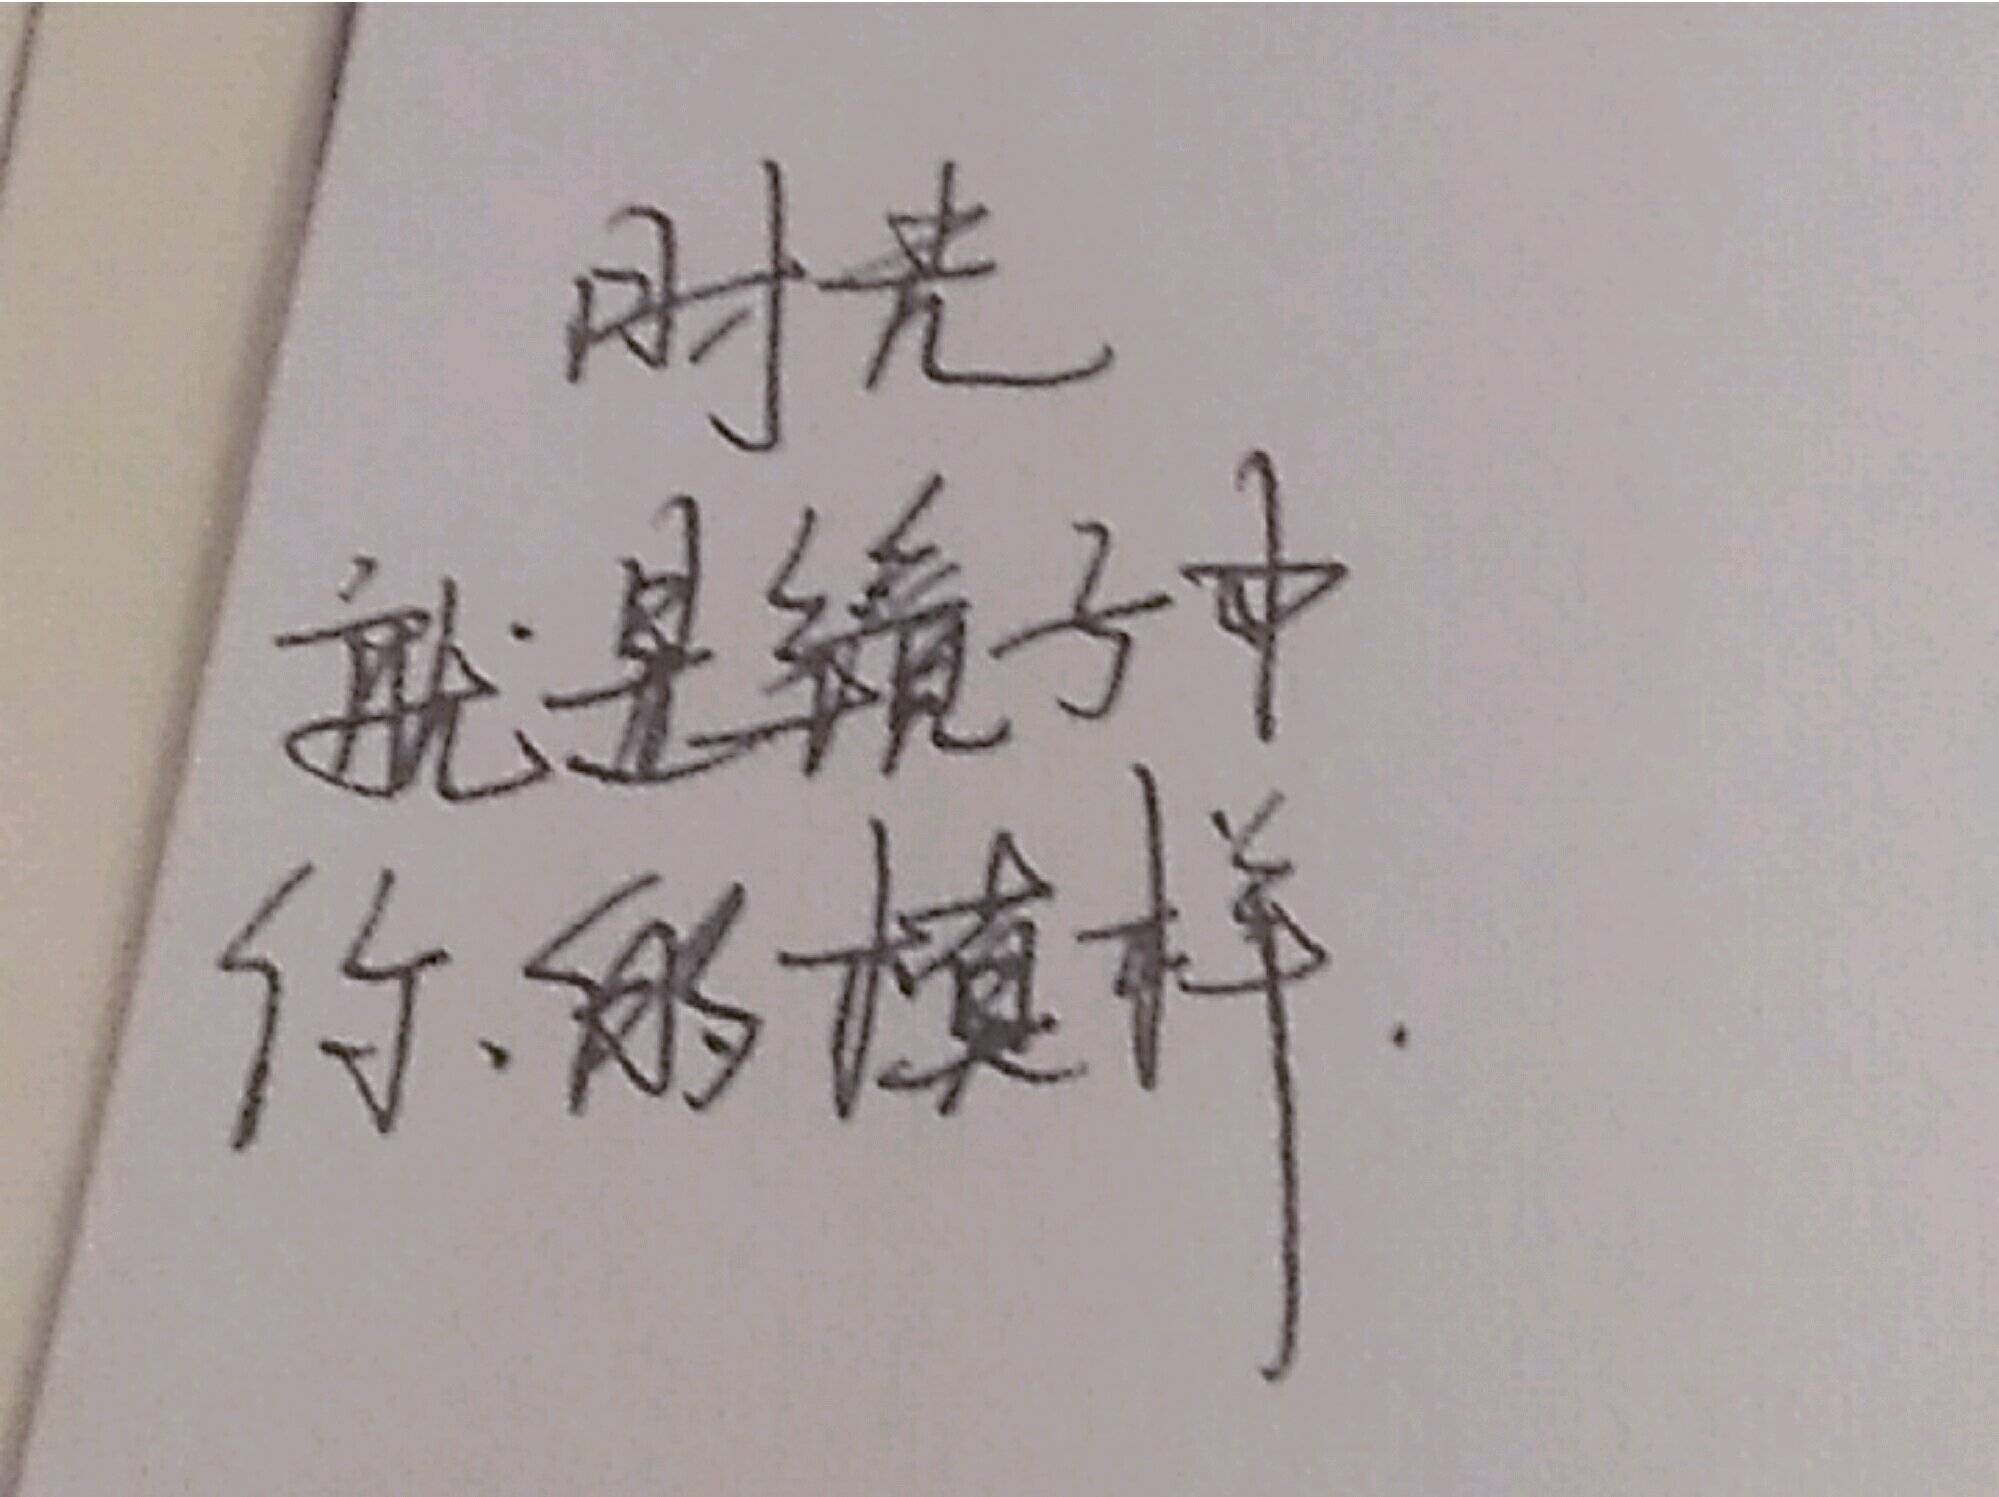 时光
就是镜子中
你的模样.